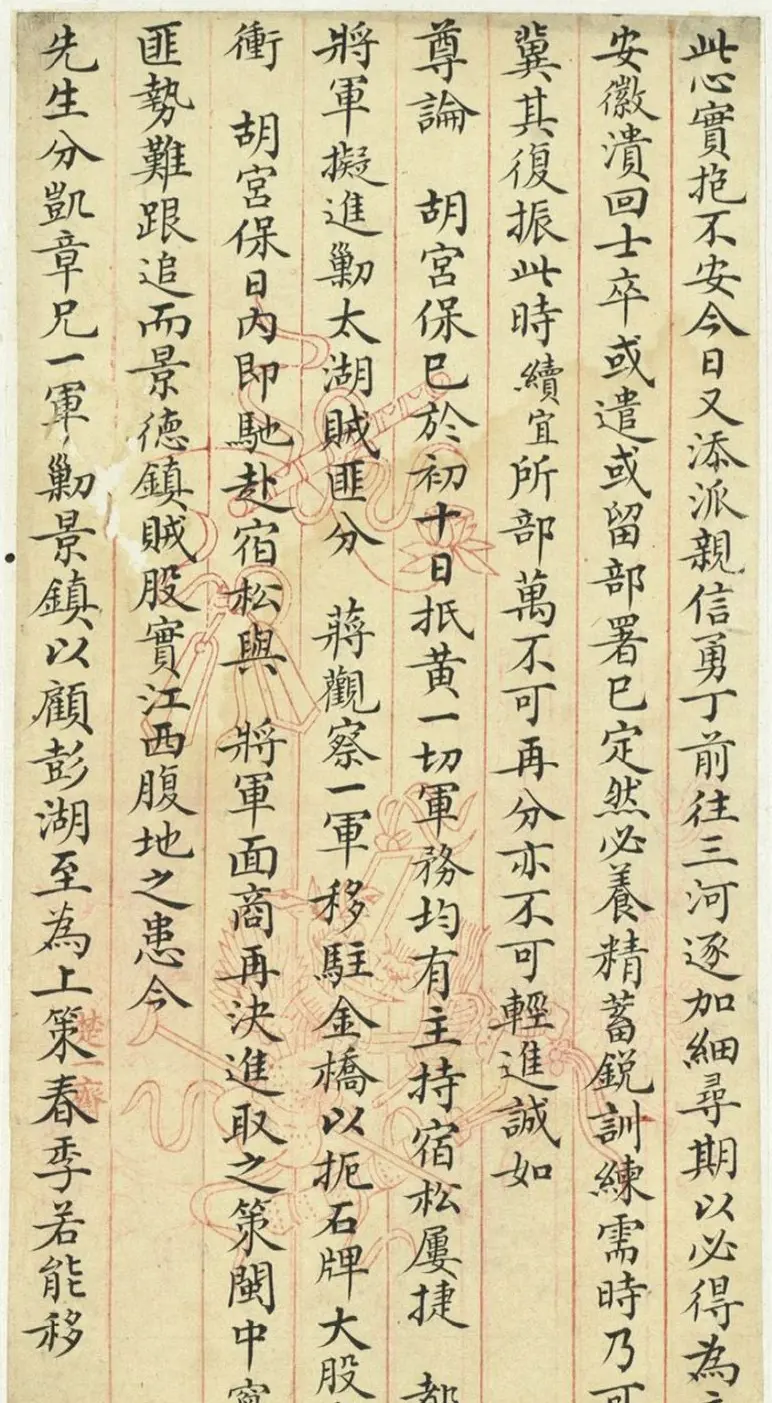 此心實抱不安今日又添派親信勇丁前往三河逐加細尋期以必得為
安徽潰回士卒或遣或留部署已定然必養精蓄銳訓練需時乃可
冀其復振此時續宜所部萬不可再分亦不可輕進誠如
尊論 胡宮保已於初十日抵黃一切軍務均有主持宿松屢捷 都
將軍擬進勦太湖賊匪分 蔣觀察一軍移駐金橋以扼石牌大股
衝 胡宮保日內即馳赴宿松與 將軍面商再決進取之策閩中
匪勢難跟追而景德鎮賊股實江西腹地之患今
先生分凱章兄一軍勦景鎮以顧彭湖至為上策春季若能移
楚一齋